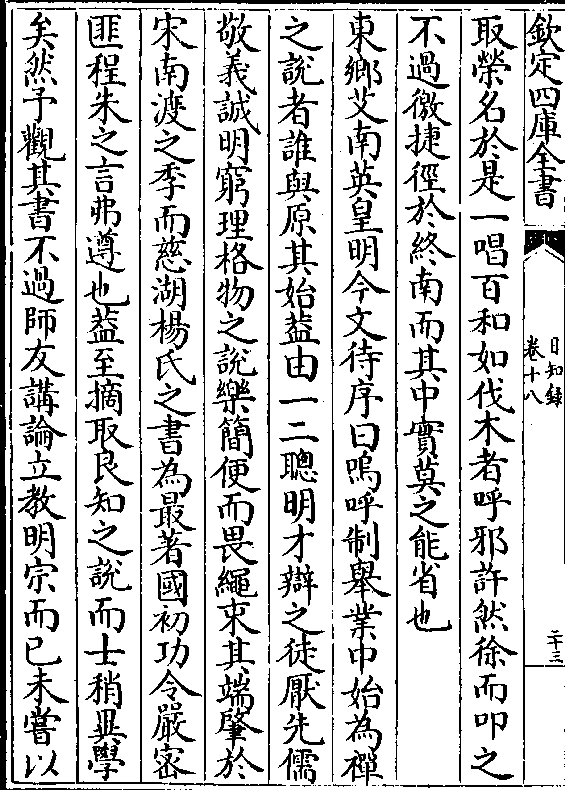 欽定四庫全書
日知録
卷十八
二十三
取榮名於是一唱百和如伐木者呼邪許然徐而叩之
不過徼捷徑於終南而其中實莫之能省也
東鄉艾南英皇明今文待序曰嗚呼制舉業中始為禪
之說者誰與原其始葢由一二聰明才辯之徒厭先儒
敬義誠明窮理格物之說樂簡便而畏繩束其端肇於
宋南渡之季而慈湖楊氏之書為最著國初功令嚴密
匪程朱之言弗遵也葢至摘取良知之說而士稍異學
矣然予觀其書不過師友講論立教明宗而已未嘗以